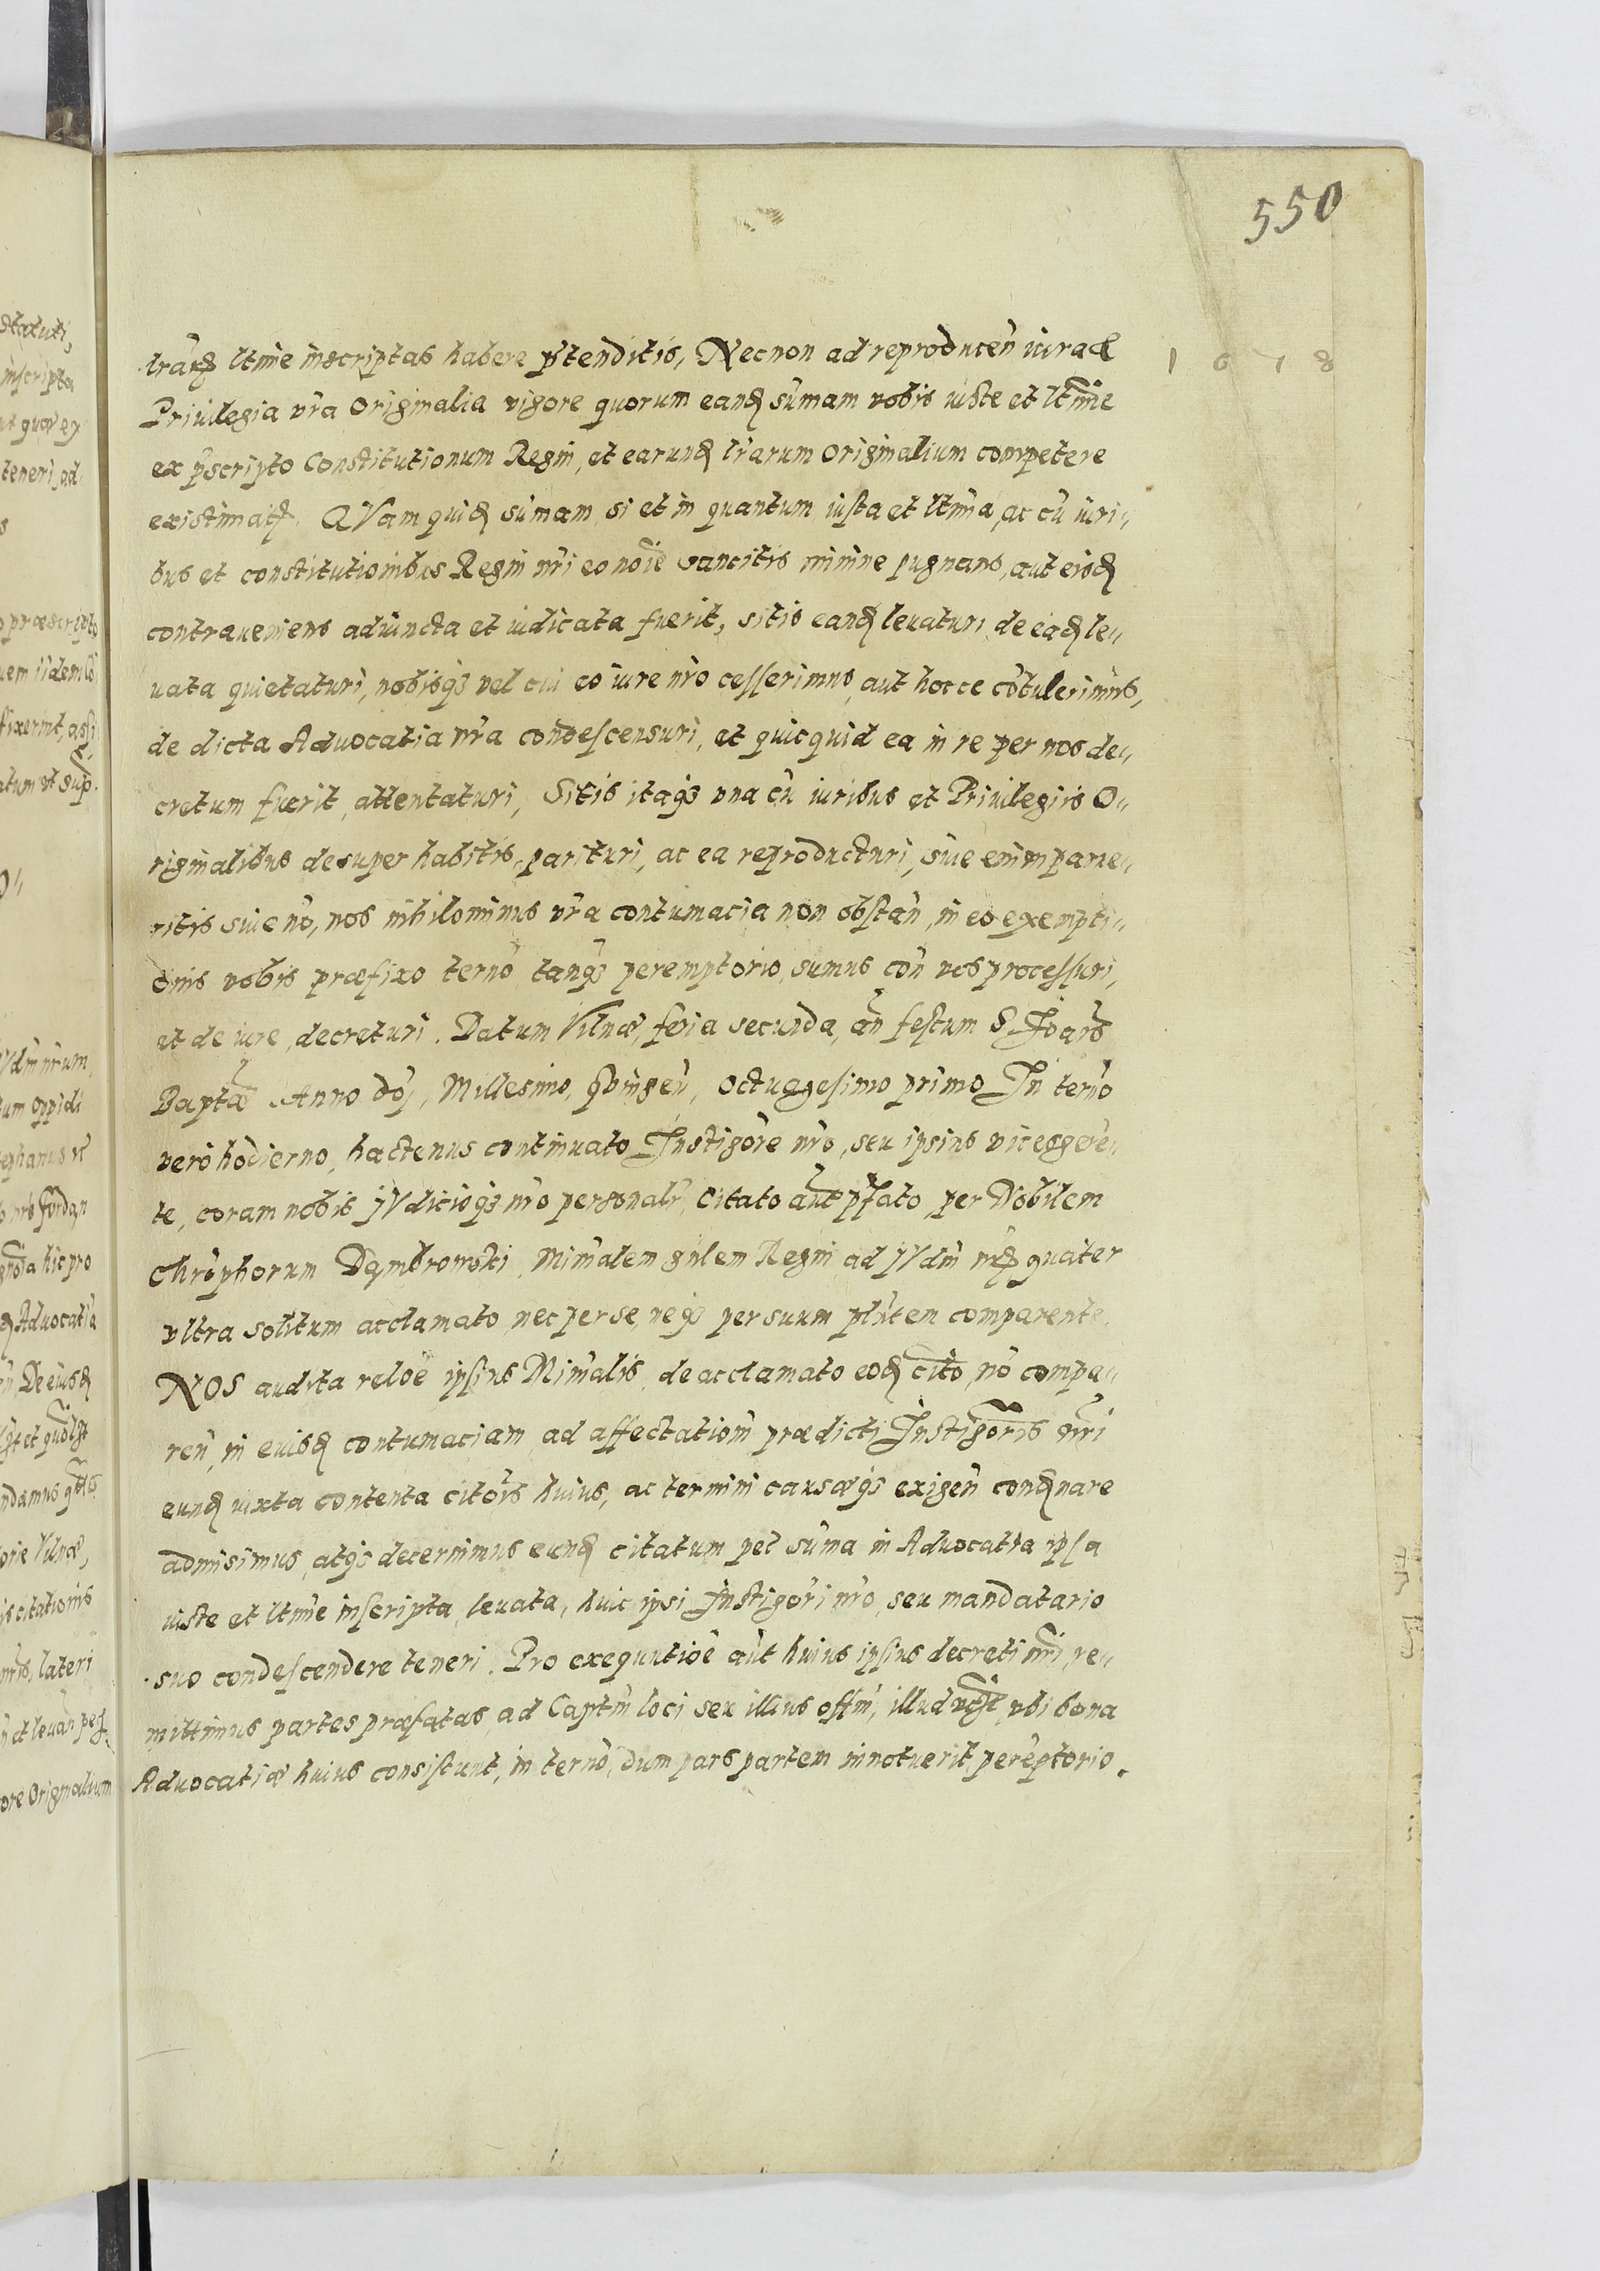 550
1 6 7 8
lrarꝝ ltime inscriptas habere p̃tenditis, Necnon ad reproducen̄ iura et
Priuilegia vr̃a Originalia vigore quorum eandꝫ sum̃am vobis iuste et ltime
ex p̃scripto Constitutionum Regni, et earundꝫ lrarum Originalium competere
existimatꝭ. QVam quidꝫ sum̃am, si et in quantum iusta et ltima, ac cū iuri„
bus et constitutionibus Regni nr̃i eo noīe sancitis minime pugnans, aut eisdꝫ
contraueniens adiuncta et iudicata fuerit, sitis eandꝫ leuaturi, de eadꝫ le„
uata quietaturi, nobisqꝫ vel cui eo iure nr̃o cesserimus, aut hocce cōtulerimus,
de dicta Aduocatia vr̃a condescensuri, et quicquid ea in re per nos de„
cretum fuerit, attentaturi, Sitis itaqꝫ vna cū iuribus et Priuilegiis O„
riginalibus desuper habitis, parituri, ac ea reproducturi, siue enim parue„
ritis siue nō, nos nihilominus vr̃a contumacia non obstan̄, in eo exempti„
onis vobis præfixo terño tanqꝫ peremptorio, sumus con̄ vos processuri,
et de iure, decreturi. Datum Vilnæ, feria secunda, an̄ festum S. Joañis
Baptæ Anno Doj̄, Millesimo, qvingen̄, octuagesimo primo In terño
vero hodierno, hactenus continuato, Instigōre nr̃o, seu ipsius viceggere„
te, coram nobis, jVdicioqꝫ nr̃o personalr̃, Citato aut p̃fato, per Nobilem
Chrōphorum Dąmbrowski Min̄alem gn̄lem Regni ad jVdm̄ nr̃ꝝ quater
vltra solitum acclamato, nec per se, neqꝫ per suum pln̄tem comparente.
NOS audita reloē ipsius Min̄alis, de acclamato eodꝫ cito, nō compa„
ren̄, in euisdꝫ contumaciam, ad affectationm̄ prædicti Instigoris nr̃i
eundꝫ iuxta contenta citōis huius, ac termini causæqꝫ exigen̄ condꝫnare
admisimus, atqꝫ decernimus eundꝫ citatum pec̄ sum̃a in Aduocatia ipsa
iuste et ltime inscripta, leuata, huic ipsi Instigōri nr̃o, seu mandatario
suo condescendere teneri. Pro exequutioē aut̄ huius ipsius decreti nr̃i re„
mittimus partes præfatas, ad Captm̄ loci seu illius offm̄, illud vcꝫt vbi bona
Aduocatiæ huius consistunt, in terño, dum pars partem innotuerit, perēptorio.